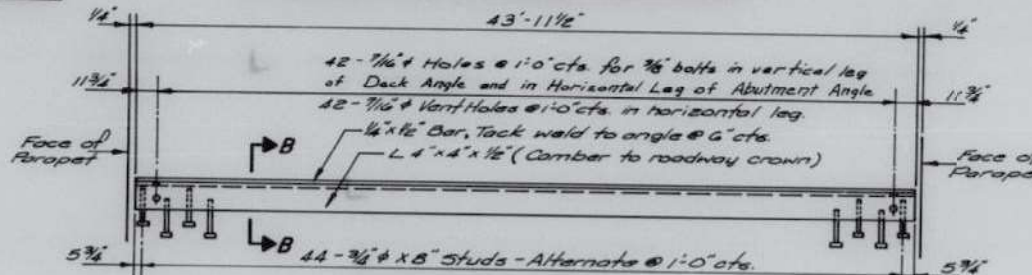 1/4" 43'-11 1/2" 1/4"
42-7/16" φ Holes @ 1'-0" cts. for 3/8" bolts in vertical leg
of Deck Angle and in Horizontal Leg of Abutment Angle
11 3/4" 11 3/4"
42-7/16" φ Vent Holes @ 1'-0" cts. in horizontal leg.
1/4" x 1/2" Bar, Tack weld to angle @ 6" cts.
Face of
Parapet
B
L 4" x 4" x 1/2" (Camber to roadway crown)
Face of
Parapet
B
5 3/4" 44-3/4" φ x 8" Studs - Alternate @ 1'-0" cts. 5 3/4"